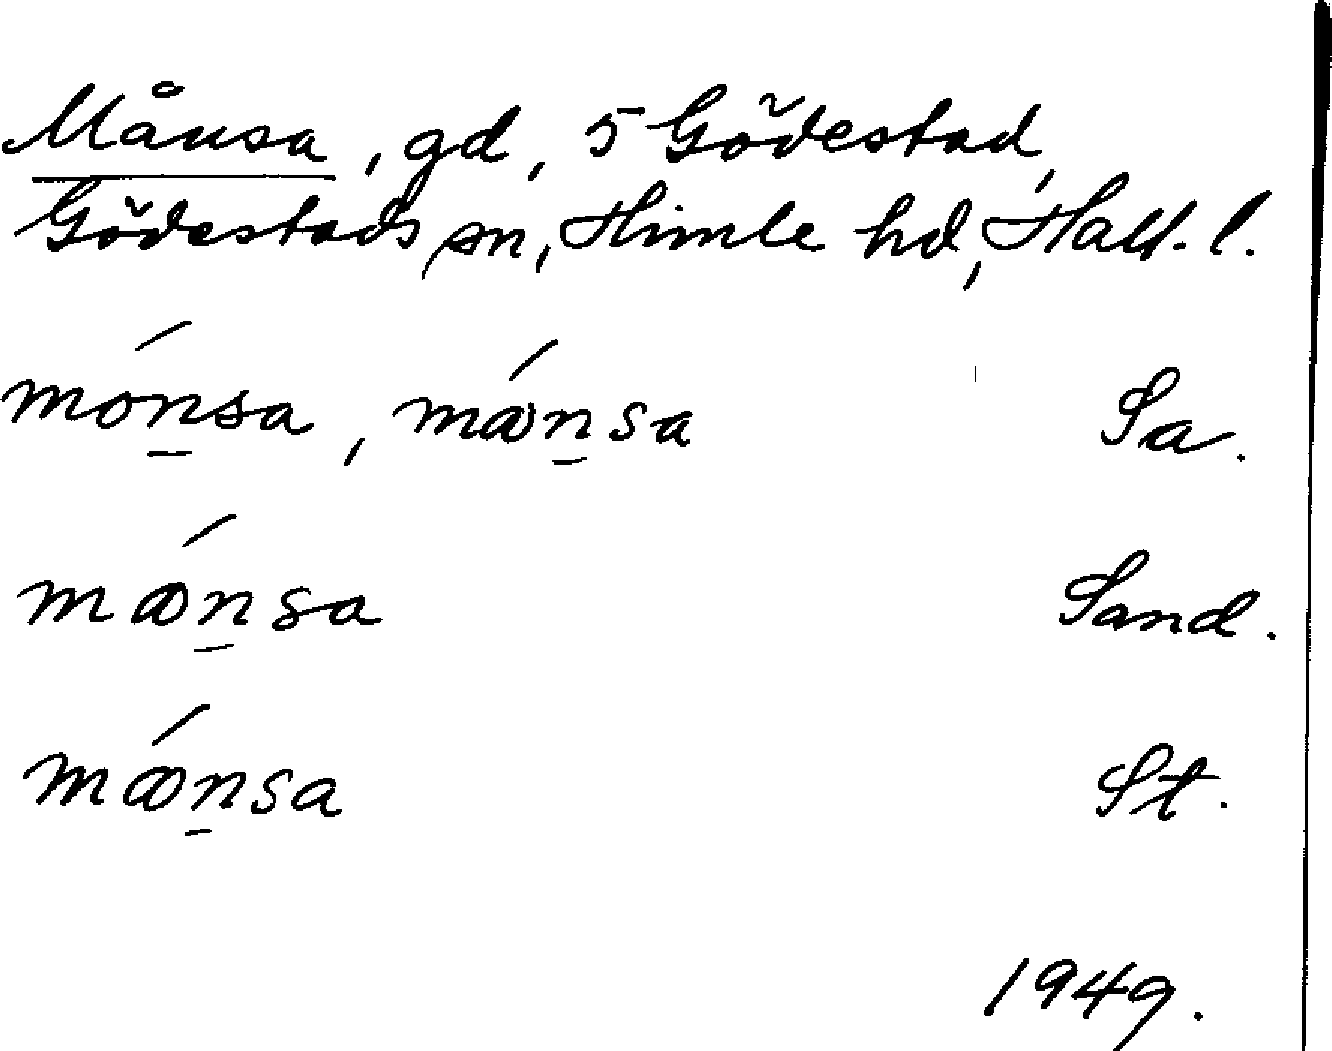 Månsa, gd, 5 Gödestad,
Gödestads sn, Himle hd, Hall. l.
món̲sa, mǿn̲sa Sa.
mǿn̲sa Sand.
mǿn̲sa St.
1949.